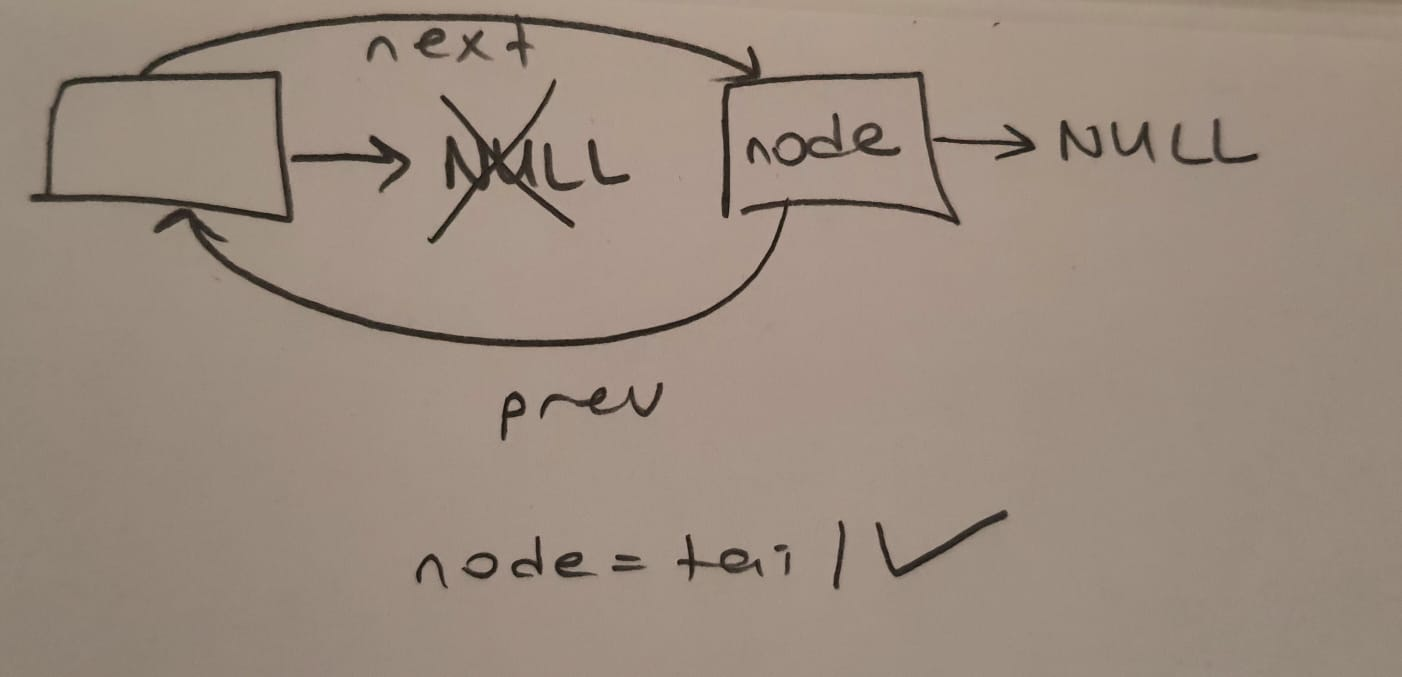 next
NULL
node
NULL
prev
node = tail ✓